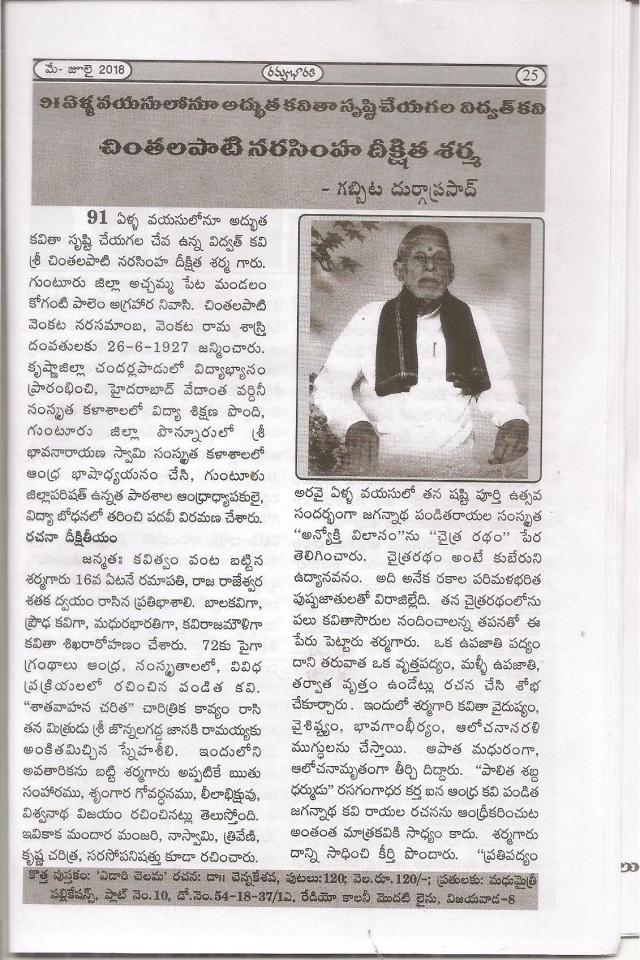 మే- జూలై 2018
రమ్యభారతి
25
91 ఏళ్ళ వయసులోనూ అద్భుత కవితా సృష్టి చేయగల విద్వత్ కవి
చింతలపాటి నరసింహ దీక్షిత శర్మ
- గబ్బిట దుర్గాప్రసాద్
91 ఏళ్ళ వయసులోనూ అద్భుత
కవితా సృష్టి చేయగల చేవ ఉన్న విద్వత్ కవి
శ్రీ చింతలపాటి నరసింహ దీక్షిత శర్మ గారు.
గుంటూరు జిల్లా అచ్చమ్మ పేట మండలం
కోగంటి పాలెం అగ్రహార నివాసి. చింతలపాటి
వెంకట నరసమాంబ, వెంకట రామ శాస్త్రి
దంపతులకు 26-6-1927 జన్మించారు.
కృష్ణాజిల్లా చందర్లపాడులో విద్యాభ్యాసం
ప్రారంభించి, హైదరాబాద్ వేదాంత వర్దినీ
సంస్కృత కళాశాలలో విద్యా శిక్షణ పొంది,
గుంటూరు జిల్లా పొన్నూరులో శ్రీ
భావనారాయణ స్వామి సంస్కృత కళాశాలలో
ఆంధ్ర భాషాధ్యయనం చేసి, గుంటూరు
జిల్లాపరిషత్ ఉన్నత పాఠశాల ఆంధ్రాధ్యాపకులై,
విద్యా బోధనలో తరించి పదవీ విరమణ చేశారు.
రచనా దీక్షితీయం
జన్మతః కవిత్వం వంట బట్టిన
శర్మగారు 16వ ఏటనే రమాపతి, రాజ రాజేశ్వర
శతక ద్వయం రాసిన ప్రతిభాశాలి. బాలకవిగా,
ప్రౌఢ కవిగా, మధురభారతిగా, కవిరాజమౌళిగా
కవితా శిఖరారోహణం చేశారు. 72కు పైగా
గ్రంథాలు ఆంధ్ర, సంస్కృతాలలో, వివిధ
ప్రక్రియలలో రచించిన పండిత కవి.
"శాతవాహన చరిత" చారిత్రిక కావ్యం రాసి
తన మిత్రుడు శ్రీ జొన్నలగడ్డ జానకి రామయ్యకు
అంకితమిచ్చిన స్నేహశీలి. ఇందులోని
అవతారికను బట్టి శర్మగారు అప్పటికే ఋతు
సంహారము, శృంగార గోవర్ధనము, లీలాభిక్షువు,
విశ్వనాథ విజయం రచించినట్లు తెలుస్తోంది.
ఇవికాక మందార మంజరి, నాస్వామి, త్రివేణి,
కృష్ణ చరిత్ర, సరసోపనిషత్తు కూడా రచించారు.
అరవై ఏళ్ళ వయసులో తన షష్టి పూర్తి ఉత్సవ
సందర్భంగా జగన్నాథ పండితరాయల సంస్కృత
"అన్యోక్తి విలాసం"ను "చైత్ర రథం" పేర
తెలిగించారు. చైత్రరథం అంటే కుబేరుని
ఉద్యానవనం. అది అనేక రకాల పరిమళభరిత
పుష్పజాతులతో విరాజిల్లేది. తన చైత్రరథంలోను
పలు కవితాసౌరుల నందించాలన్న తపనతో ఈ
పేరు పెట్టారు శర్మగారు. ఒక ఉపజాతి పద్యం
దాని తరువాత ఒక వృత్తపద్యం, మళ్ళీ ఉపజాతి,
తర్వాత వృత్తం ఉండేట్లు రచన చేసి శోభ
చేకూర్చారు. ఇందులో శర్మగారి కవితా వైదుష్యం,
వైశిష్ట్యం, భావగాంభీర్యం, ఆలోచనాసరళి
ముగ్ధులను చేస్తాయి. ఆపాత మధురంగా,
ఆలోచనామృతంగా తీర్చి దిద్దారు. "పాలిత శబ్ద
ధర్ముడు" రసగంగాధర కర్త ఐన ఆంధ్ర కవి పండిత
జగన్నాథ కవి రాయల రచనను ఆంధ్రీకరించుట
అంతంత మాత్రకవికి సాధ్యం కాదు. శర్మగారు
దాన్ని సాధించి కీర్తి పొందారు. "ప్రతిపద్యం
కొత్త పుస్తకం: 'ఏడారి చెలమ' రచన: డా॥ చెన్నకేశవ, పుటలు:120; వెల.రూ.120/-; ప్రతులకు: మధుమైత్రీ
పబ్లికేషన్స్, ప్లాట్ నెం.10, డో.నెం.54-18-37/1ఎ, రేడియో కాలనీ మొదటి లైను, విజయవాడ-8